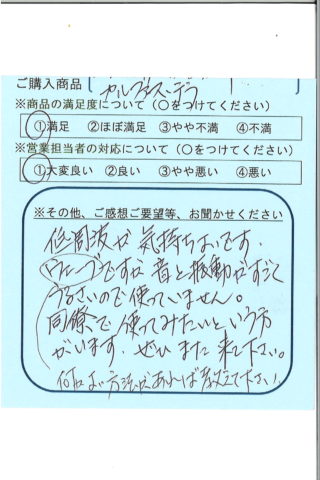 ご購入商品
カルブス・デラ
※商品の満足度について(○をつけてください)
①満足 ②ほぼ満足 ③やや不満 ④不満
※営業担当者の対応について(○をつけてください)
①大変良い ②良い ③やや悪い ④悪い
※その他、ご感想ご要望等、お聞かせください
低周波が気持ちよいです.
ウェーブですが音と振動がすごく
うるさいので使っていません。
同僚で使ってみたいという方
がいます.ぜひまた来て下さい。
何か良い方法があれば教えて下さい.